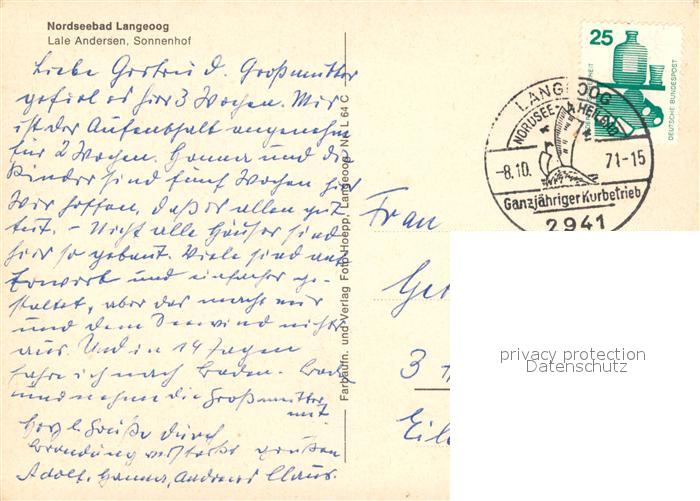 Nordseebad Langeoog
Lale Andersen, Sonnenhof
Liebe Gertrud. Großmutter
gefiel es hier 3 Wochen. Mir
ist der Aufenthalt angenehm
für 2 Wochen. Hanna und die
Kinder sind fünf Wochen hier
Wir hoffen, daß es allen gut
tut. – Nicht alle Häuser sind
hier so gebaut. Viele sind aus
und einfacher ge-
staltet, aber das macht mir
und dem Seewind nichts
aus. Und in 14 Tagen
fahre ich nach Baden.
und nehme die Großmutter
mit.
Herzl. Grüße durch
Brandung verstärkt grüßen
Adolf, Hanna, Andreas Claus.
Farbaufn. und Verlag Foto Hoepp, Langeoog Nr. L 64 C
25
DEUTSCHE BUNDESPOST
LANGEOOG
NORDSEE-
-8.10.
71-15
Ganzjähriger Kurbetrieb
2941
Frau
Ger
3
Eil
privacy protection
Datenschutz